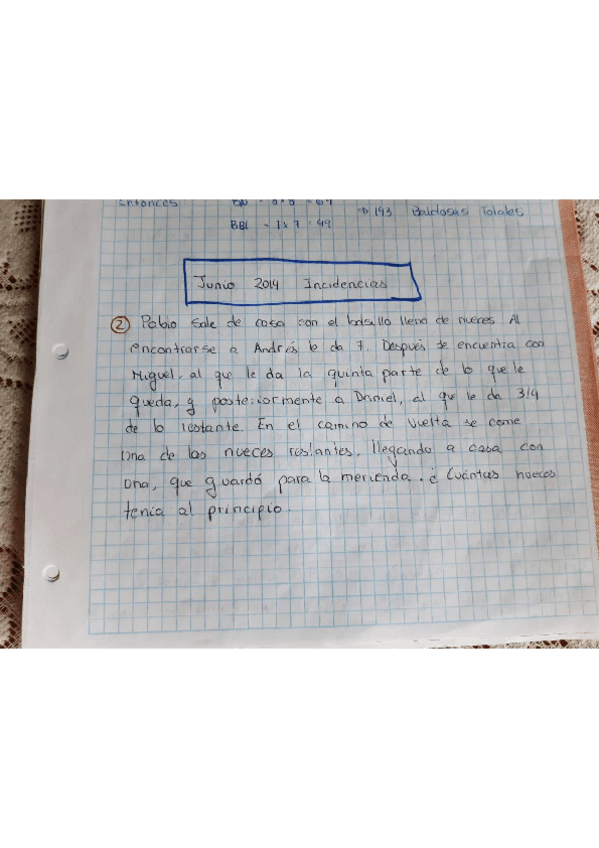 Entonces
BBL = 7x7 = 49
193 Baldosas Totales
Junio 2014 Incidencias
2 Pablo sale de casa con el bolsillo lleno de nueces. Al
encontrarse a Andrés le da 7. Después se encuentra con
Miguel, al que le da la quinta parte de lo que le
queda, y posteriormente a Daniel, al que le da 3/4
de lo restante. En el camino de vuelta se come
una de las nueces restantes, llegando a casa con
una, que guardó para la merienda. ¿Cuántas nueces
tenía al principio.